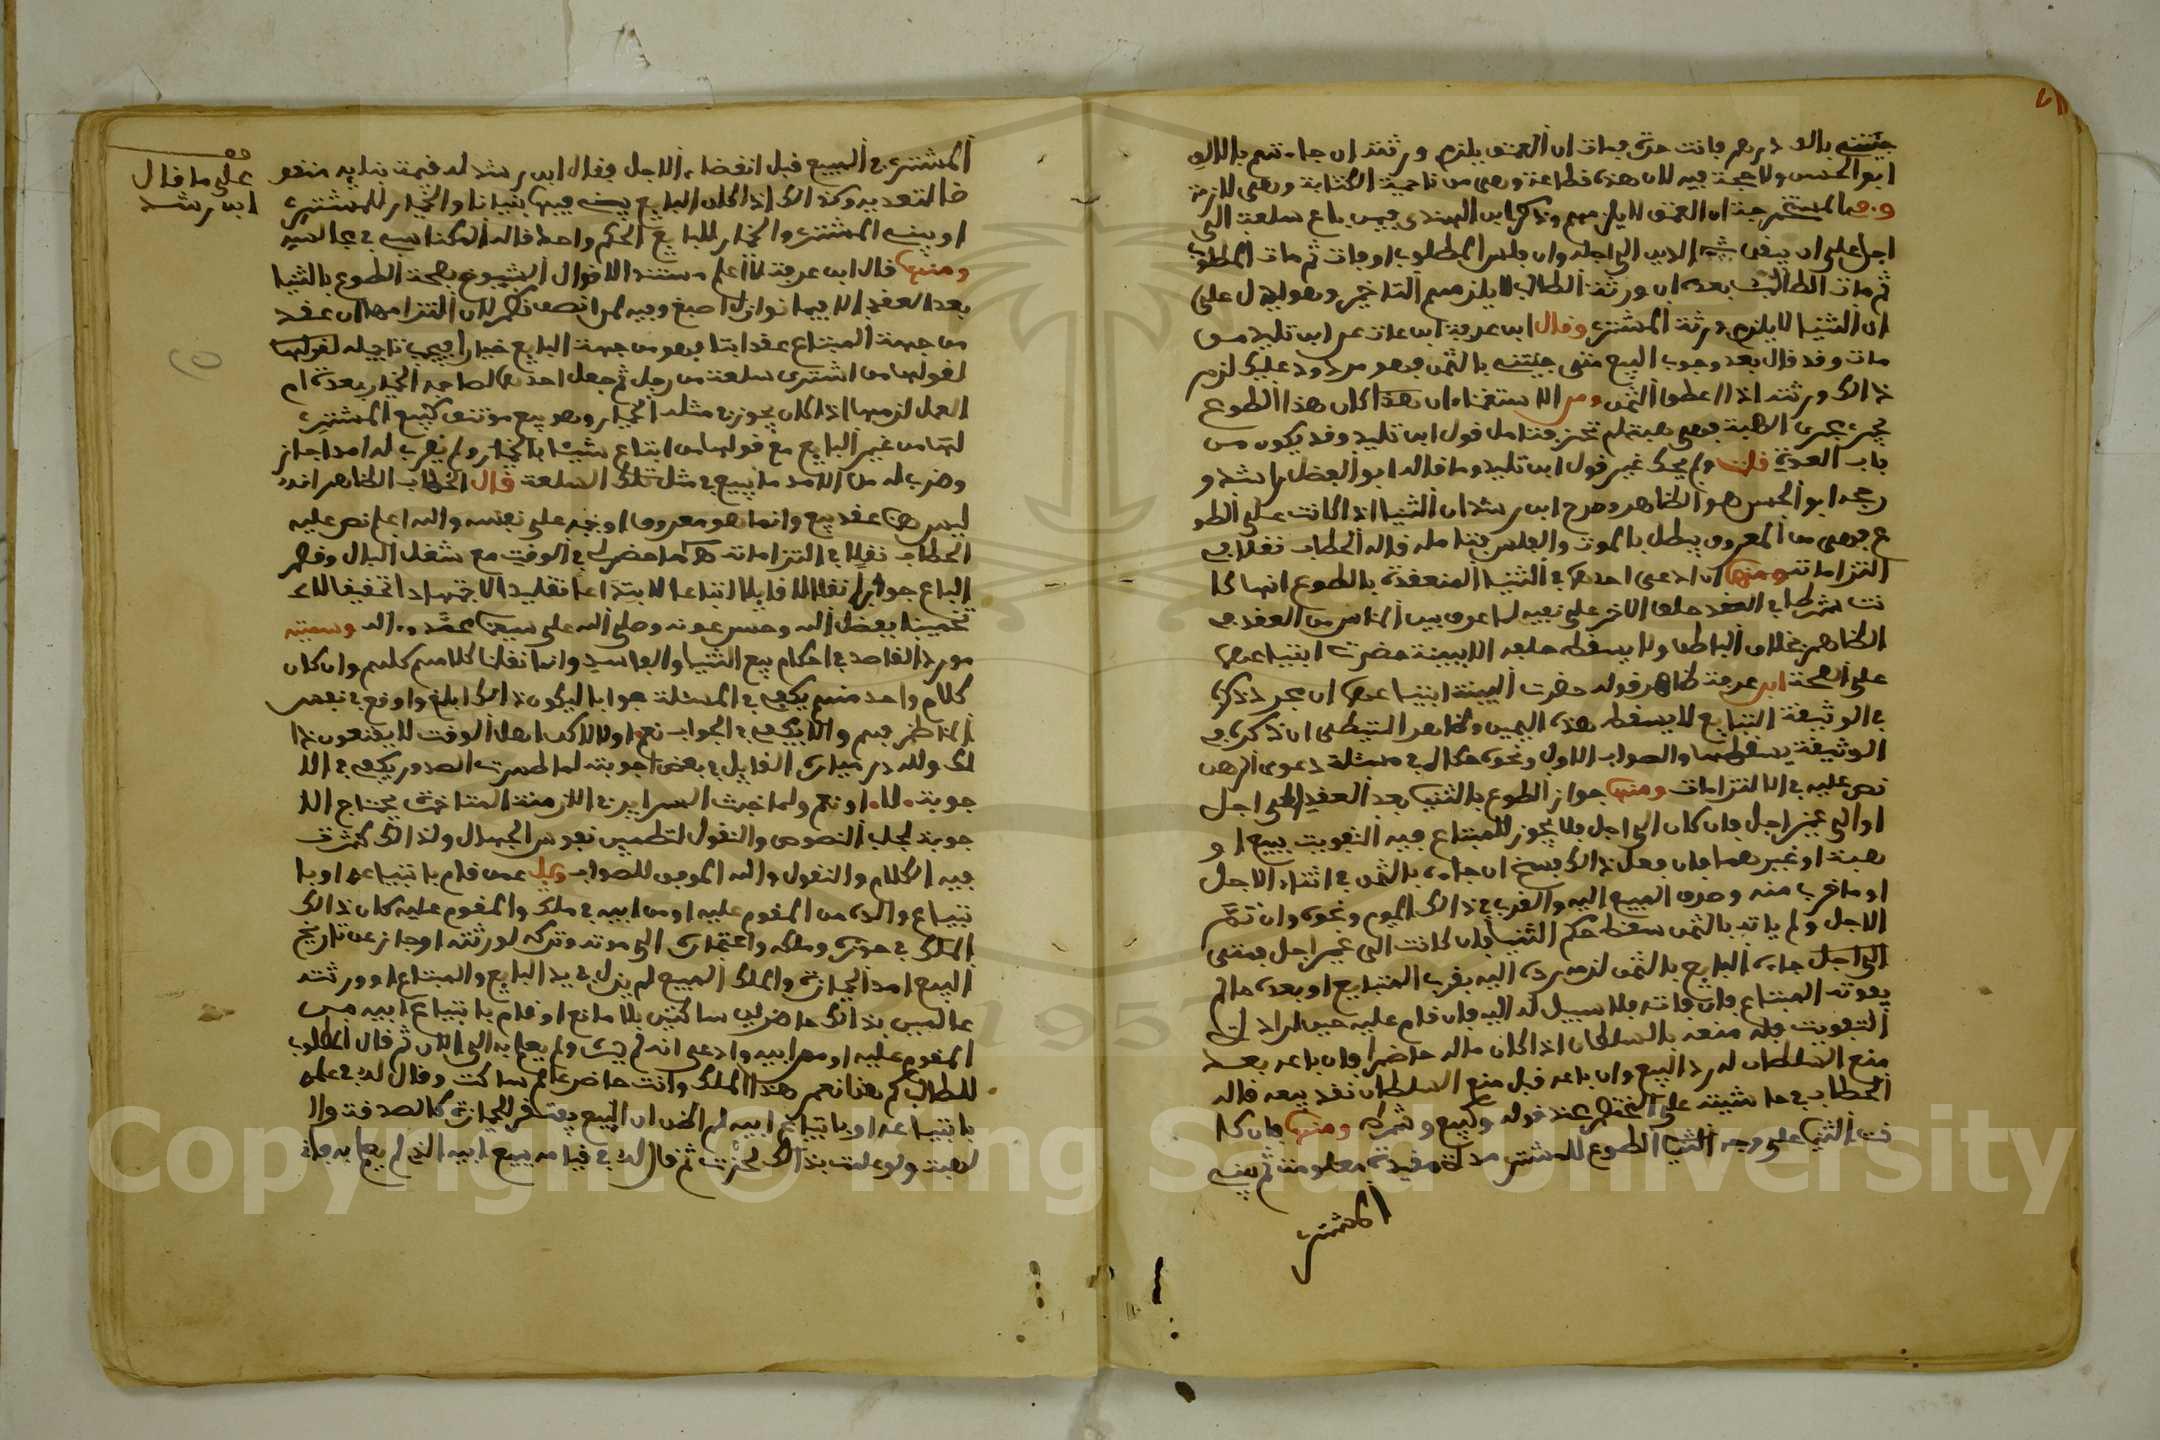 جيتنيى بالف درهم فانت حرة فمات ان العتق يلزم ورثته ان جاءتهم بالالف
ابو الحسن ولا حجة فيه لان هذه قطاعة وهى من ناحية الكتابة وهى لازمة
وفى المستخرجة ان العتق لا يلزمهم وذكر ابن الهندى فيمن باع سلعة الى
اجل على ان يبقى الدين الى اجله وان فلس المطلوب او مات ثم مات المطلوب
ثم مات الطالب بعده ان ورثة الطالب لا يلزمهم التاخير وهو يدل على
ان الثنيا لا يلزم ورثة المشترى وقال ابن عرفة ابن عات عن ابن تليد من
مات وقد قال بعد وجوب البيع متى جيتنى بالثمن فهو مردود عليك لزم
ذالك ورثته اذا اعطوا الثمن ومر الاستغناء ان هذا كان هذا الطوع
يجرى مجرى الهبة فهى هبة لم تحز فتامل قول ابن تليد وقد يكون من
باب العدة قلت ولم يحك غير قول ابن تليد وما قاله ابو الفضل راشد و
رجحه ابو الحسن هو الظاهر وصرح ابن رشد ان الثنيا اذا كانت على الطو
ع فهى من المعروف يبطل بالموت والفلس فتامله قاله الحطاب نقلا فى
التزاماته ومنها ان ادعى احدهما فى الثنيا المنعقدة بالطوع انها كا
نت شرطا فى العقد حلف الاخر على نفيه لما عرف بين الناس من العقد فى
الظاهر بخلاف الباطن ولا يسقط حلفه الا ببينة حضرت ابتياعهما
على الصحة ابن عرفة ظاهر قوله حضرت البينة ابتياعهما ان مجرد ذكره
فى الوثيقة التبايع لا يسقط هذه اليمين وظاهر المتيطى ان ذكره فى
الوثيقة يسقطها والصواب الاول ونحوه حكاه فى مسئلة دعوى الرهن
نص عليه فى الالتزامات ومنها جواز الطوع بالثنيا بعد العقد الى اجل
او الى غير اجل فان كان الى اجل فلا يجوز للمبتاع فيه التفويت ببيع او
هبة او غيرهما فان فعل ذالك فسخ ان جاءه بالثمن فى اثناء الاجل
او ما قرب منه وصرف المبيع اليه والقرب فى ذالك اليوم ونحوه وان تم
الاجل ولم يات بالثمن سقط حكم الثنيا فان كانت الى غير اجل فمتى
الى اجل جاءه البايع بالثمن لزمه رده اليه بقرب التبايع او بعده ما لم
يفوته المبتاع فان فاته فلا سبيل له اليه فان قام عليه حين اراد
التفويت فله منعه بالسلطان اذا كان ماله حاضرا فان باعه بعد
منع السلطان له رد البيع وان باعه قبل منع السلطان نفذ بيعه قاله
الحطاب فى حاشيته على المختصر عند قوله وكبيع وشرط ومنها فان كا
نت الثنيا على وجه الثنيا الطوع للمشترى مدة مقيدة معلومة ثم بنى
المشترى
المشترى فى المبيع قبل انقضاء الاجل فقال ابن رشد له قيمة بنايه منقو
ضا لتعديه وكذالك اذا كان البايع يبنى فيها بنيانا والخيار للمشترى
او يبنى المشترى والخيار للبايع الحكم واحد قاله المكناسى فى مجالسه
ومنها قال ابن عرفة لا اعلم مستندا لاقوال الشيوخ بصحة الطوع بالثنيا
بعد العقد الا فيما نوازل اصبغ وفيه لمن انصف نظر لان التزامها ان عقد
من جهة المبتاع عقد ابتا فهو من جهة البايع خيار فيجب تاجيله لقولها
لقولها من اشترى سلعة من رجل ثم جعل احدهما لصاحبه الخيار بعد تمام
العمل لزمها اذا كان يجوز فى مثله الخيار وهو بيع مؤتنف كبيع المشترى
لها من غير البايع مع قولها من ابتاع شيئا بالخيار ولم يضرب له امد جاز
وضرب له من الامد ما ينبغى فى مثل تلك السلعة قال الحطاب الظاهر انه
ليس هنا عقد بيع وانما هو معروف اوجبه على نفسه والله اعلم نص عليه
الحطاب نقلا فى التزاماته هذا ما حضر لى فى الوقت مع شغل البال وقصر
الباع جوابا نقلا لا قايلا اتباعا لا ابتداعا تقليدا لا اجتهادا تخفيفا لا
تخمينا بفضل الله وحسن عونه وصلى الله على سيدنا محمد وءاله وسميته
مورد القاصد فى احكام بيع الثنيا والفاسد وانما نقلنا كلامهم كلهم وان كان
كلام واحد منهم يكفى فى المسئلة جوابا ليكون ذالك ابلغ واوقع فى نفس
الناظر فيهم والا يكفى فى الجواب نعم او لا لاكن اهل الوقت لا يقنعون بذا
لك ولله در ميارة القايل فى بعض اجوبته لما طهرت الصدور يكفى فى الا
جوبة لا او نعم ولما خبثت السراير فى الازمنة المتاخرة يحتاج الا
جوبة لجلب النصوص والنقول لتطمين نفوس الجهال ولذالك كثرت
فيه الكلام والنقول والله الموفق للصواب وسيل عمن قام بابتياعه او با
بتياع والده من المقوم عليه او من ابيه فى ملك والمقوم عليه كان ذالك
الملك فى حوزه وملكه واعتماره الى موته وتركه لورثته او جاز عن تاريخ
البيع امد الحيازة والملك المبيع لم يزل فى يد البايع والمبتاع او ورثته
عالمين بذالك حاضرين ساكتين بلا مانع او قام بابتياع ابيه من
المقوم عليه او من ابيه وادعى انه لم يجئ ولم يعلم به الى الان ثم قال المطلوب
للطالب لم هذا نعمر هذا الملك وانت حاضر عالم ساكت وقال له فى علمه
بابتياعه او بابتياع ابيه لم اظن ان البيع يفتقر للحيازة كالصدقة وا
لهبة ولو علمت بذالك لحزت ثم قال له فى قيامه ببيع ابيه الذى لم يعلم به فان
على ما قال
ابن رشد